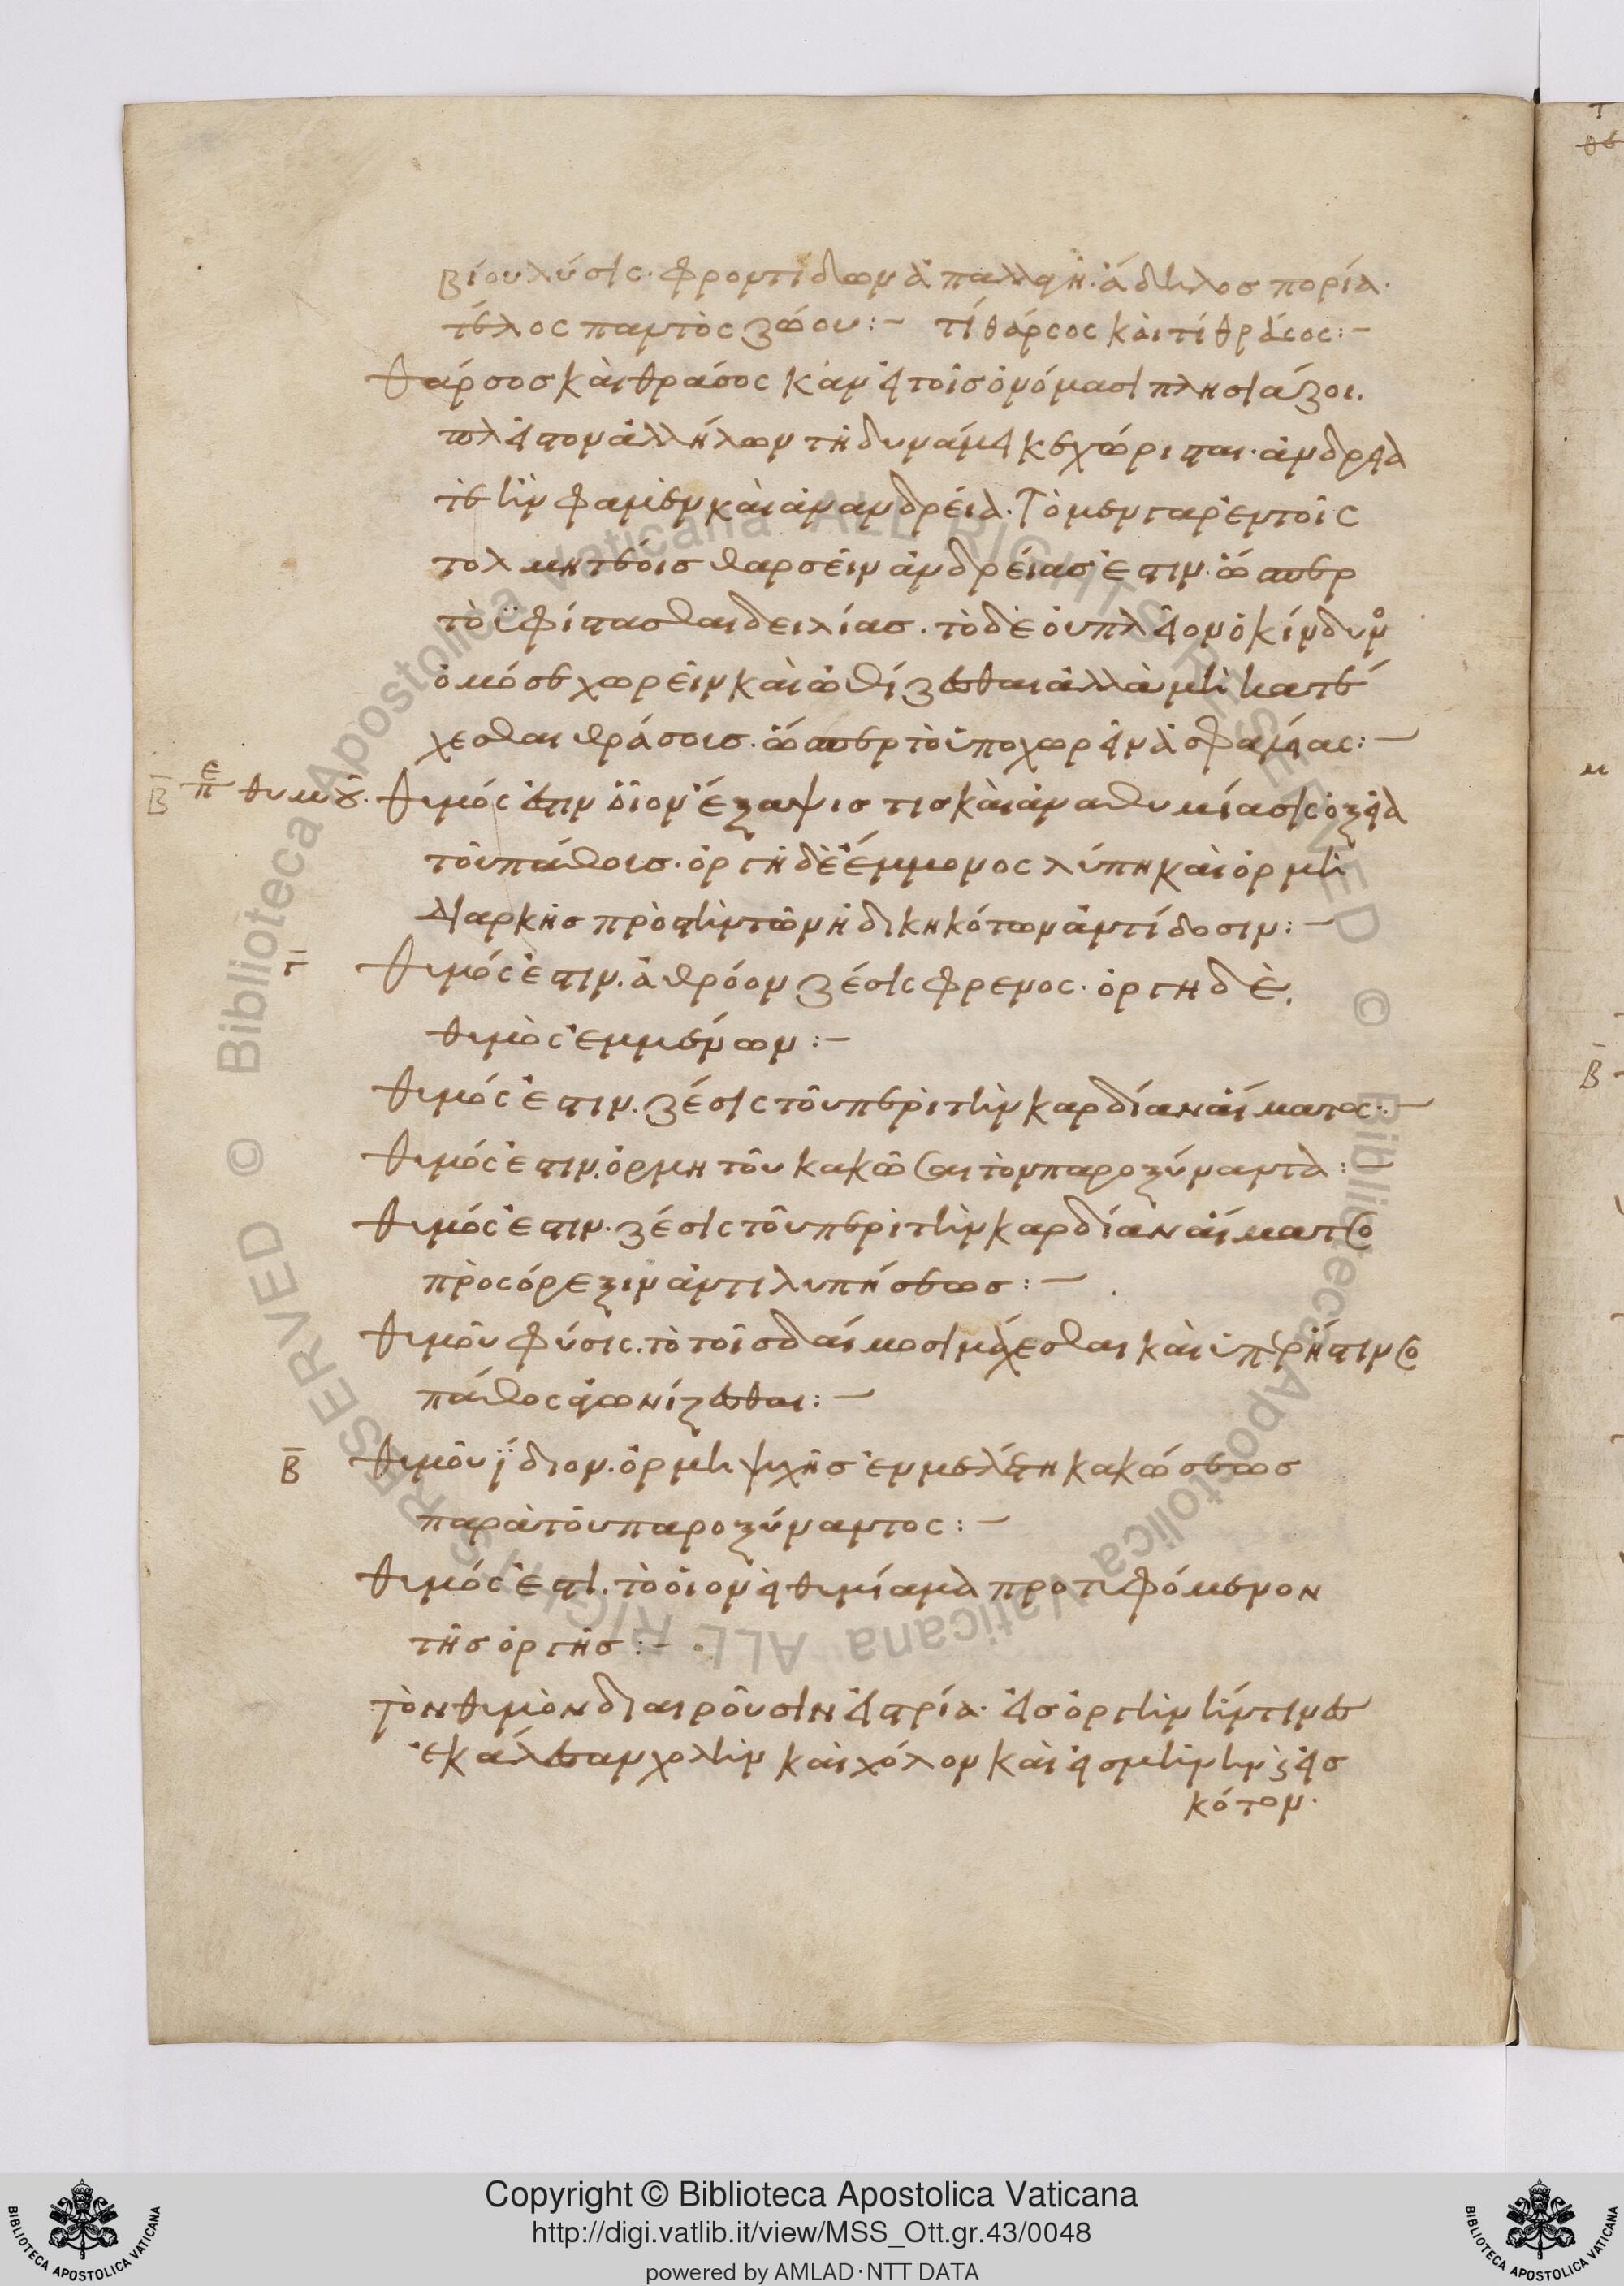 βίου λύσις· φροντίδων ἀπαλλαγή· ἄδηλος πορία·
τέλος παντὸς ζώου:– τί θάρσος καὶ τί θράσος:–
Θάρσος καὶ θράσος κἂν εἰ τοῖς ὀνόμασι πλησιάζοι.
πλεῖστον ἀλλήλων τῇ δυνάμει κεχώρισται· ἀνδρεία
τε ἣν φαμὲν καὶ ἀνανδρεία. Τὸ μὲν γὰρ ἐν τοῖς
τολμητέοις θαρσεῖν ἀνδρείας ἐστιν· ὥσπερ
τὸ ὑφίστασθαι δειλίας· τὸ δὲ οὗ πλεῖον ὁ κίνδυνος
ὁμόσε χωρεῖν καὶ ὠθίζεσθαι ἀλλὰ μὴ κατέ
χεσθαι θράσους· ὥσπερ τὸ ὑποχωρεῖν ἀσφαλείας:–
Β ἐπ θυμοῦ. Θυμός ἐστιν οἷον ἔξαψις τις καὶ ἀναθυμίασις ὀξεῖα
τοῦ πάθους· ὀργὴ δὲ ἔμμονος λύπη καὶ ὁρμὴ
διαρκὴς πρὸς τὴν τῶν ἠδικηκότων ἀντίδοσιν:–
Γ Θυμός ἐστιν. ἀθρόον ζέσις φρενος· ὀργη δὲ,
θυμὸς ἐμμένων:–
Θυμός ἐστιν. ζέσις τοῦ περὶ τὴν καρδίαν αἵματος:–
Θυμός ἐστιν. ὁρμη τοῦ κακῶσαι τὸν παροξύναντα:–
Θυμός ἐστιν. ζέσις τοῦ περὶ τὴν καρδίαν αἵματος
πρὸς ὄρεξιν ἀντιλυπήσεως:–
Θυμοῦ φύσις. τὸ τοῖς δαίμοσι μάχεσθαι καὶ ὑπὲρ ἧστινος
πάθος ἀγωνίζεσθαι:–
Β Θυμοῦ ἴδιον. ὁρμὴ ψυχῆς ἐμμελέτη κακώσεως
παρὰ τοῦ παροξύναντος:–
Θυμός ἐστι. τὸ οἱονεὶ θυμίαμα προτυφόμενον
τῆς ὀργῆς:–
Τὸν θυμὸν διαιροῦσιν εἰς τρία· εἰς ὀργὴν ἥν τινες
ἐκάλεσαν χολὴν καὶ χόλον καὶ εἰς μῆνιν καὶ εἰς
κότον·